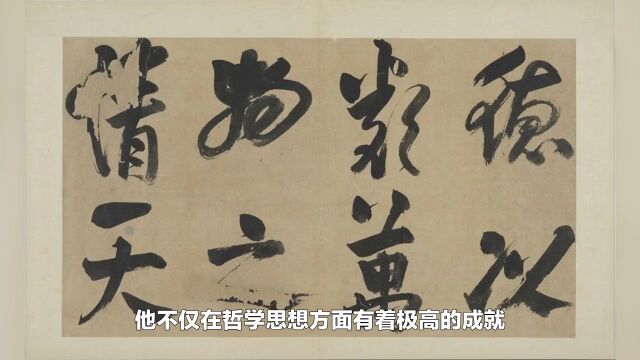 德以
類萬
物之
情天
他不仅在哲学思想方面有着极高的成就